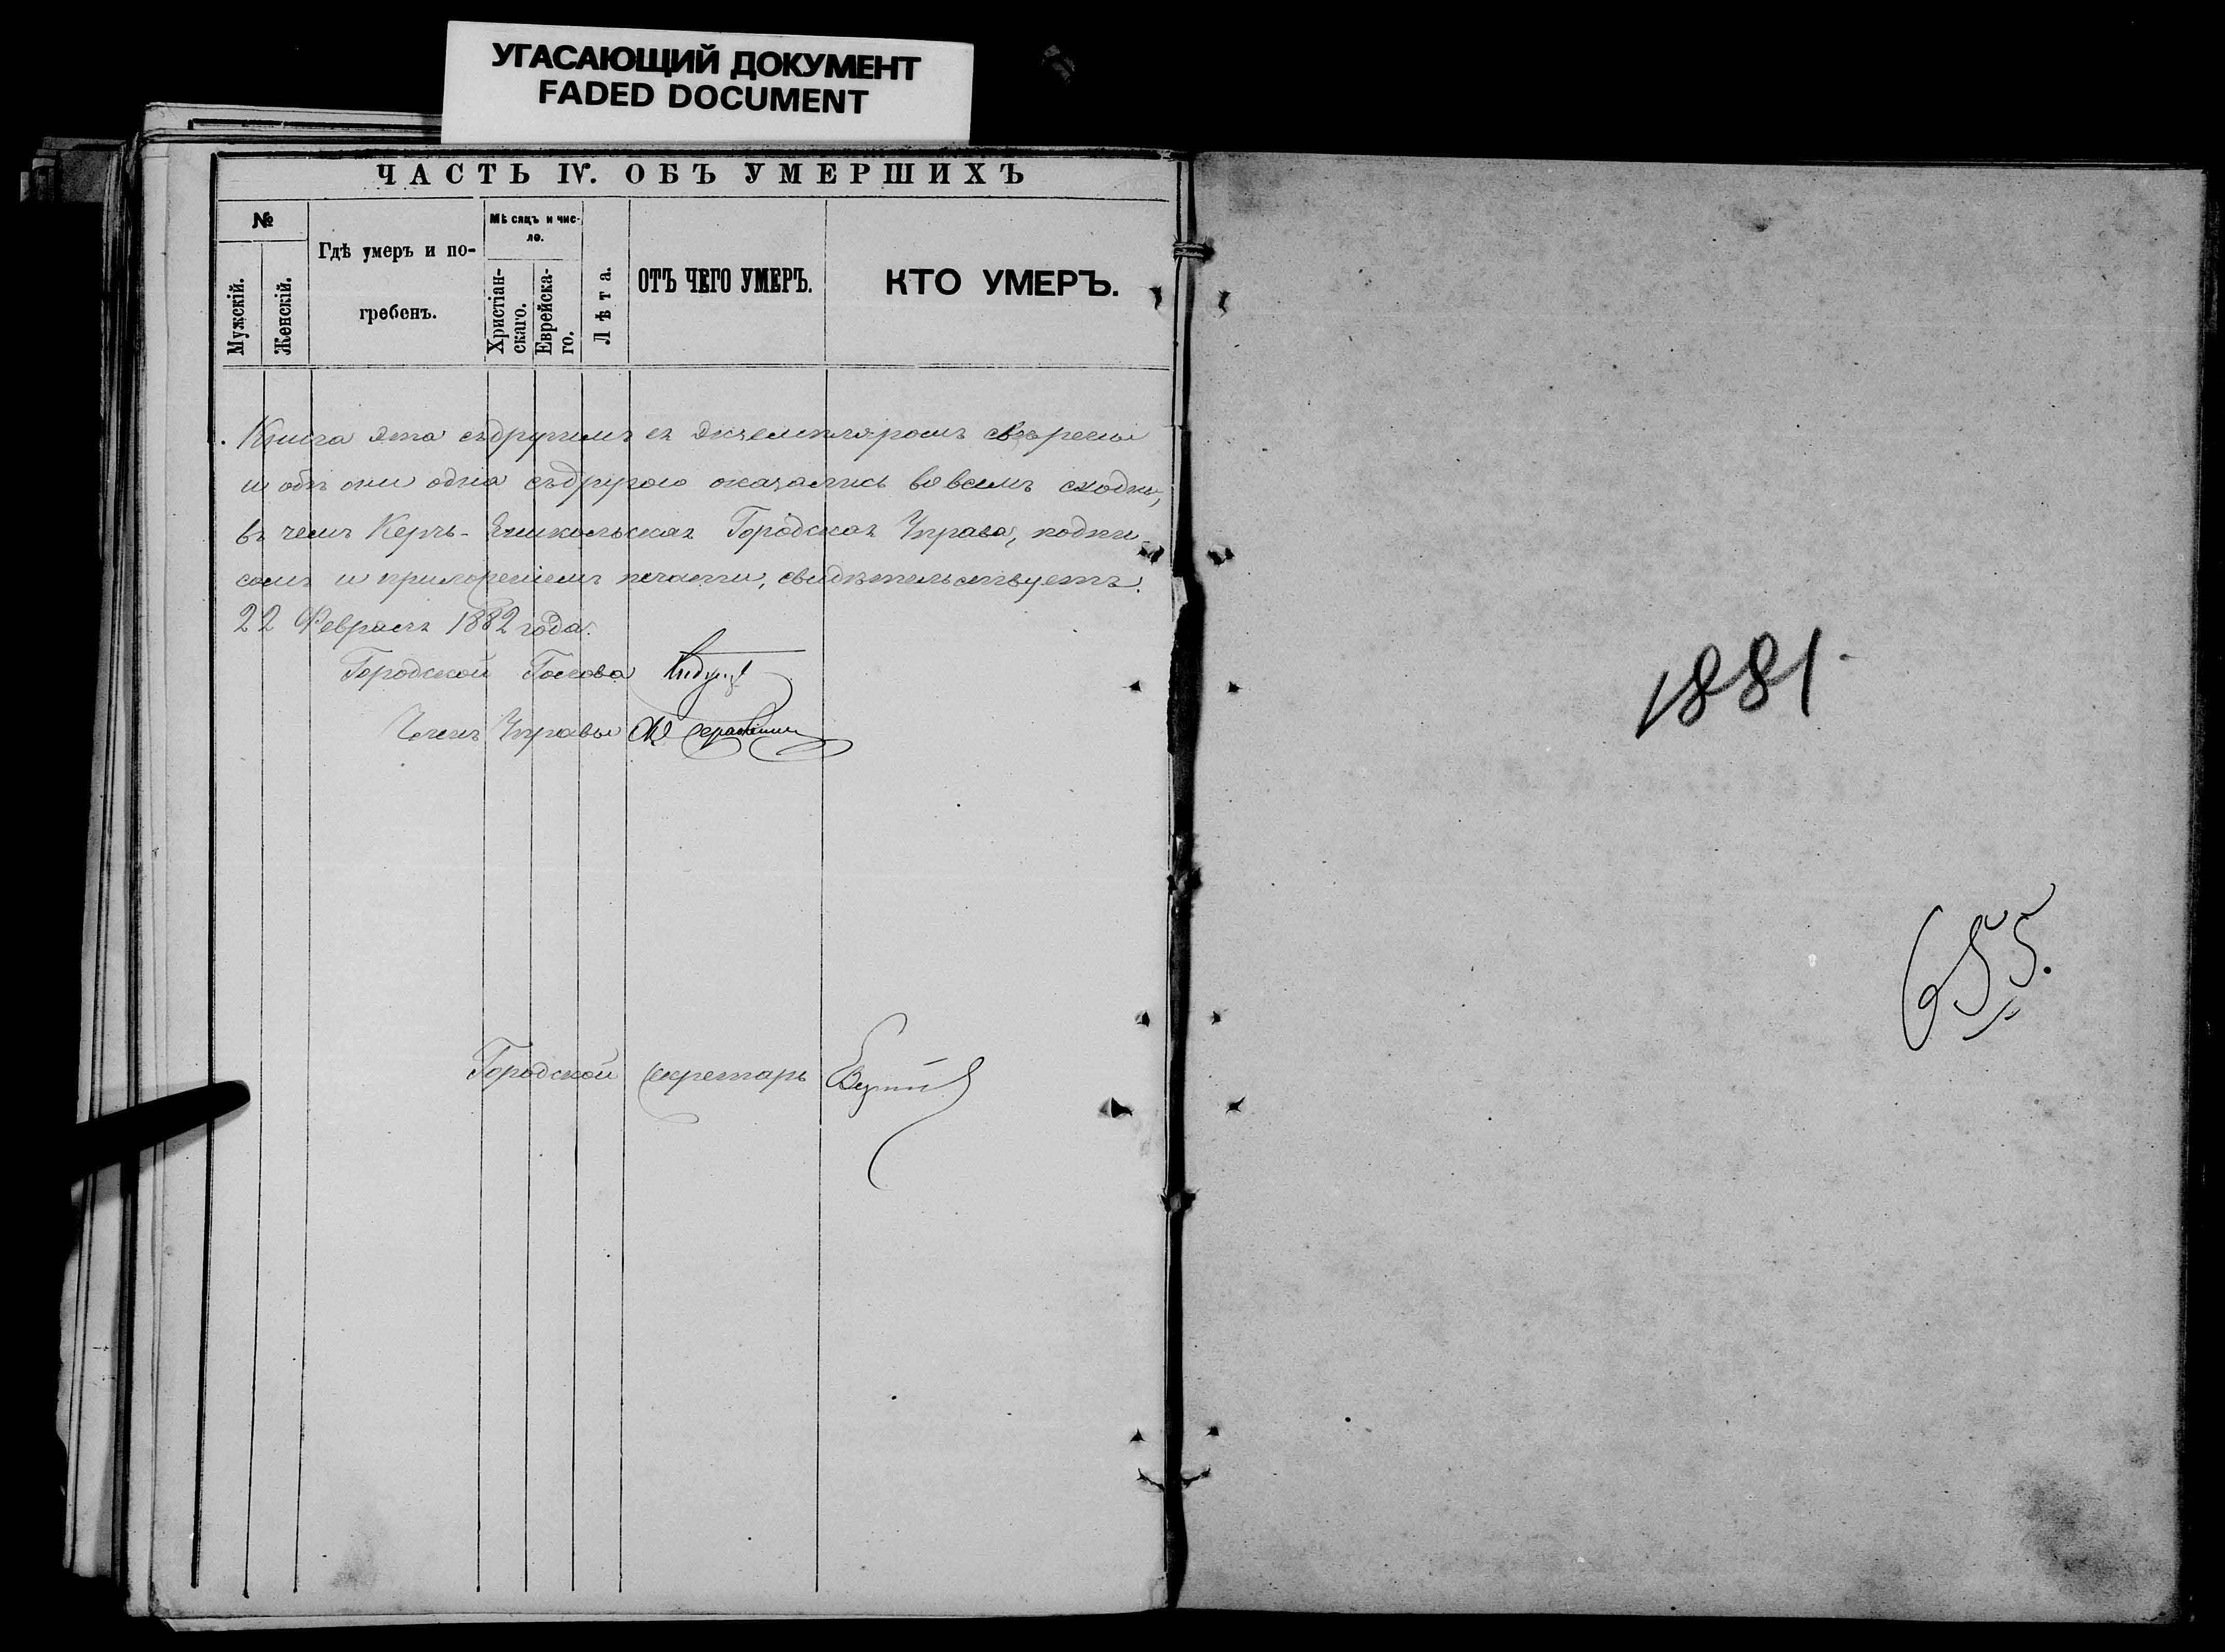 УГАСАЮЩИЙ ДОКУМЕНТ
FADED DOCUMENT
ЧАСТЬ IV. ОБЪ УМЕРШИХЪ
№
Мужскій.
Женскій.
Гдѣ умеръ и по-
гребенъ.
Мѣсяцъ и чис-
ло.
Христіан-
скаго.
Еврейска-
го.
Лѣта.
ОТЪ ЧЕГО УМЕРЪ.
КТО УМЕРЪ.
Книга эта съ другимъ ея экземпляромъ свѣрены
и обѣ они одна съ другою оказались во всемъ сходны,
въ чемъ Керчь-Еникольская Городская Управа, подпи
сомъ и приложеніемъ печати, свидѣтельствуетъ.
22 Февраля 1882 года.
Городской Голова
Членъ Управы
Городской Секретарь
1881.
655.